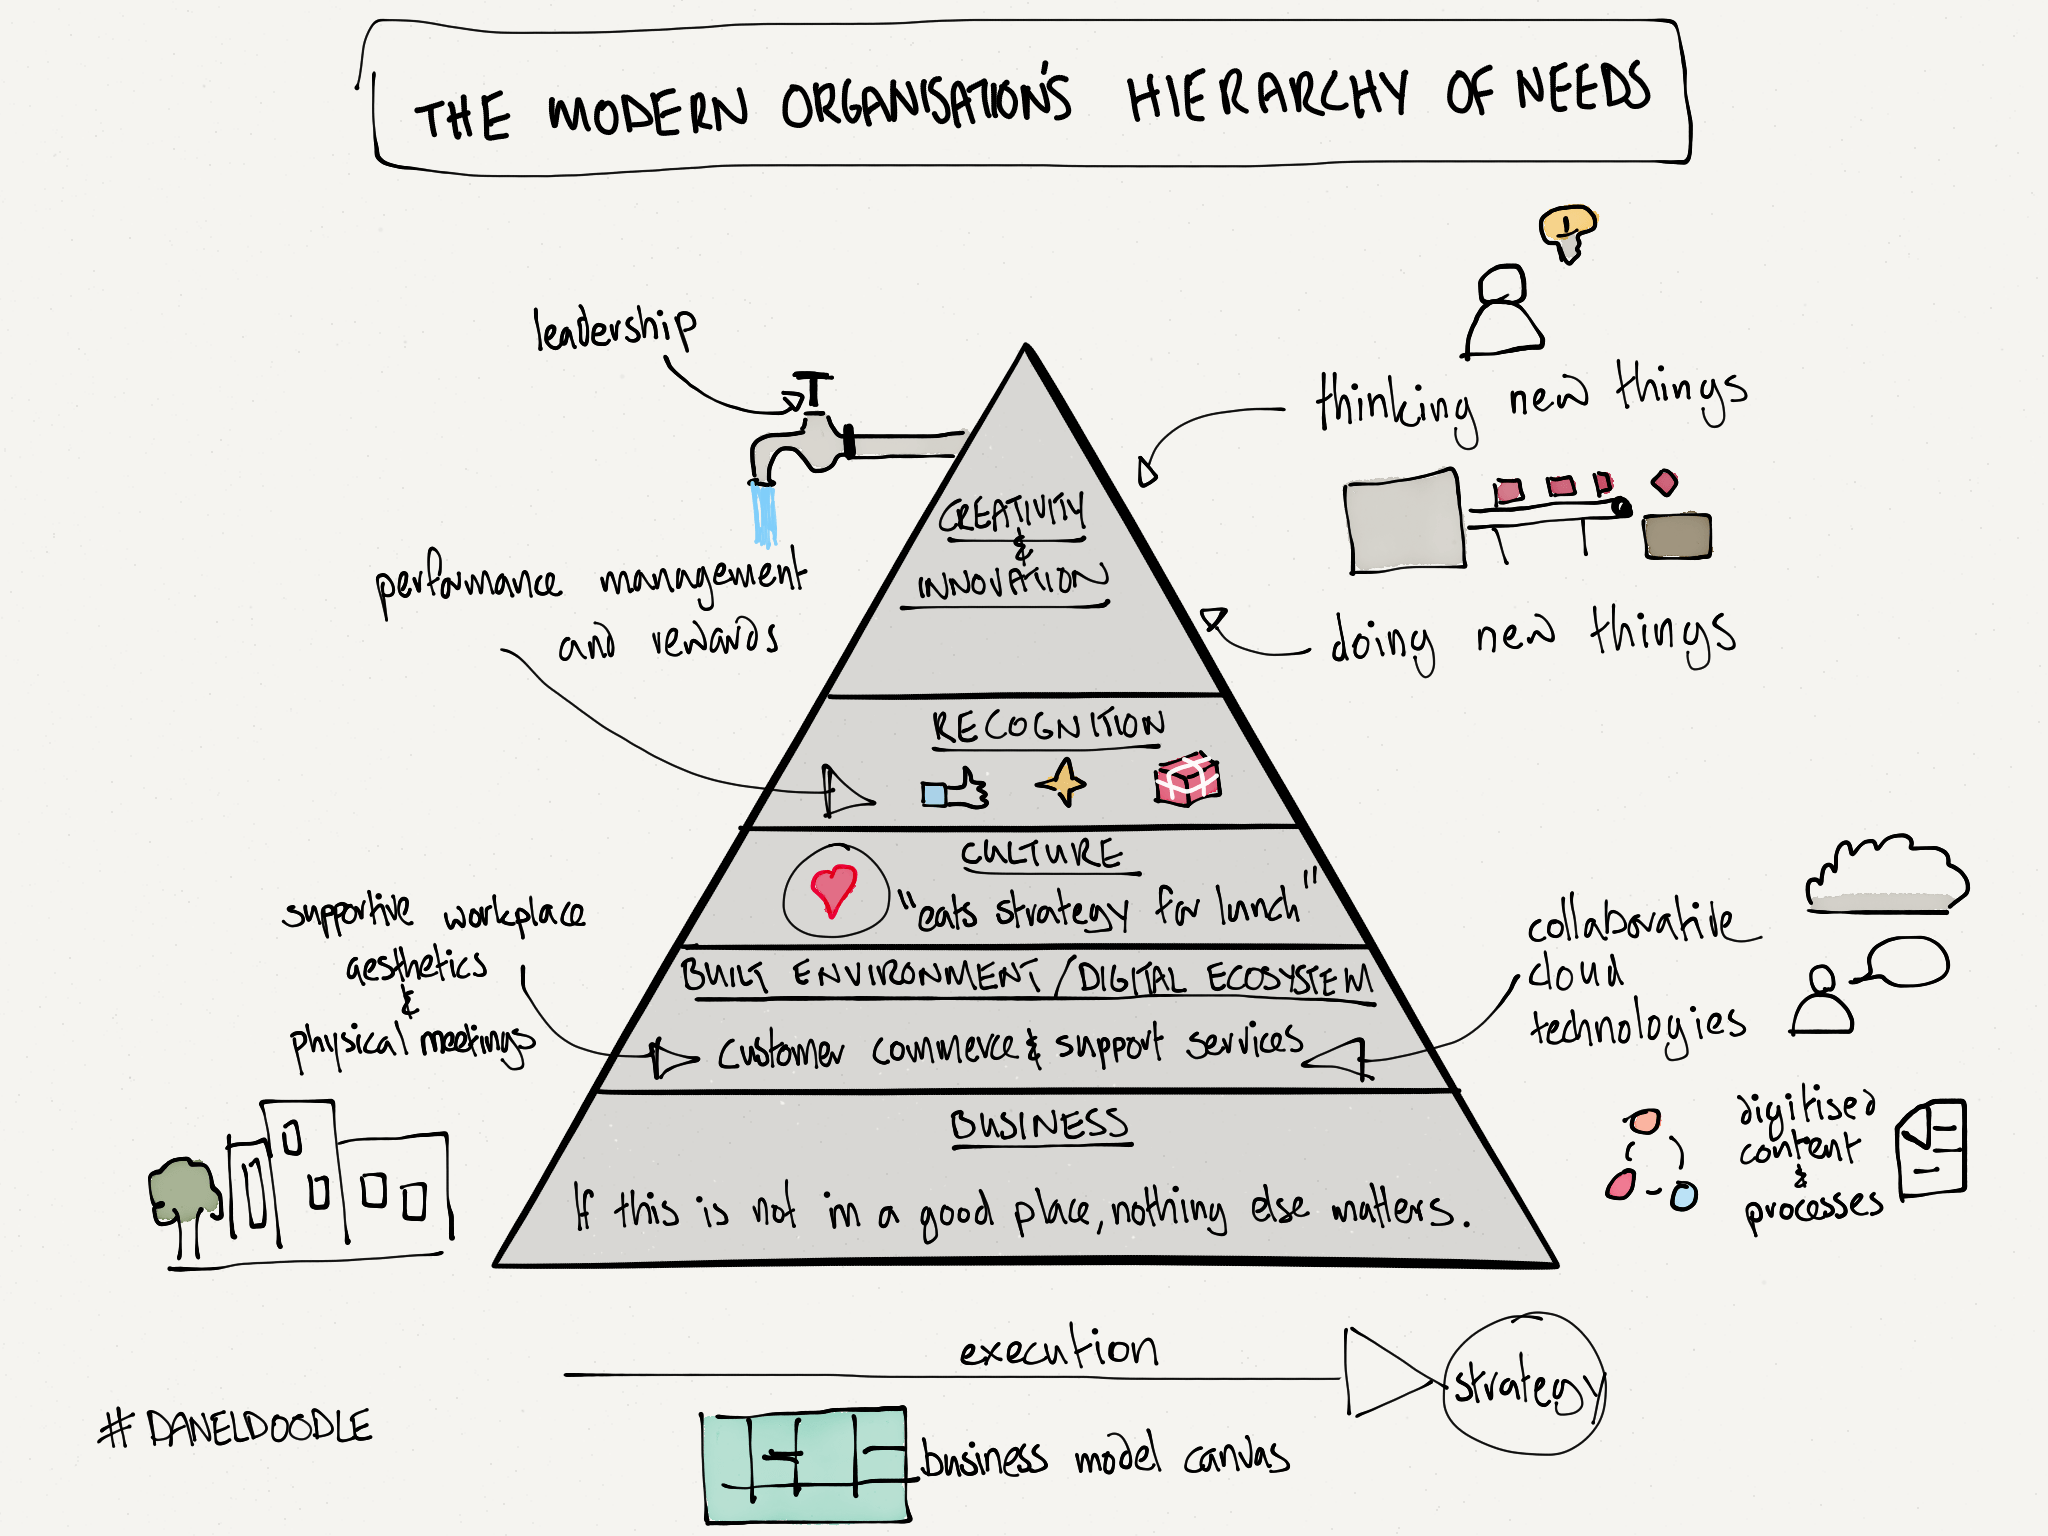 THE MODERN ORGANISATION'S HIERARCHY OF NEEDS
leadership
thinking new things
CREATIVITY
&
INNOVATION
performance management
and rewards
doing new things
RECOGNITION
CULTURE
"eats strategy for lunch"
supportive workplace
aesthetics
&
physical meetings
collaborative
cloud
technologies
BUILT ENVIRONMENT / DIGITAL ECOSYSTEM
customer commerce & support services
digitised
content
&
processes
BUSINESS
If this is not in a good place, nothing else matters.
execution
strategy
business model canvas
# DANELDOODLE